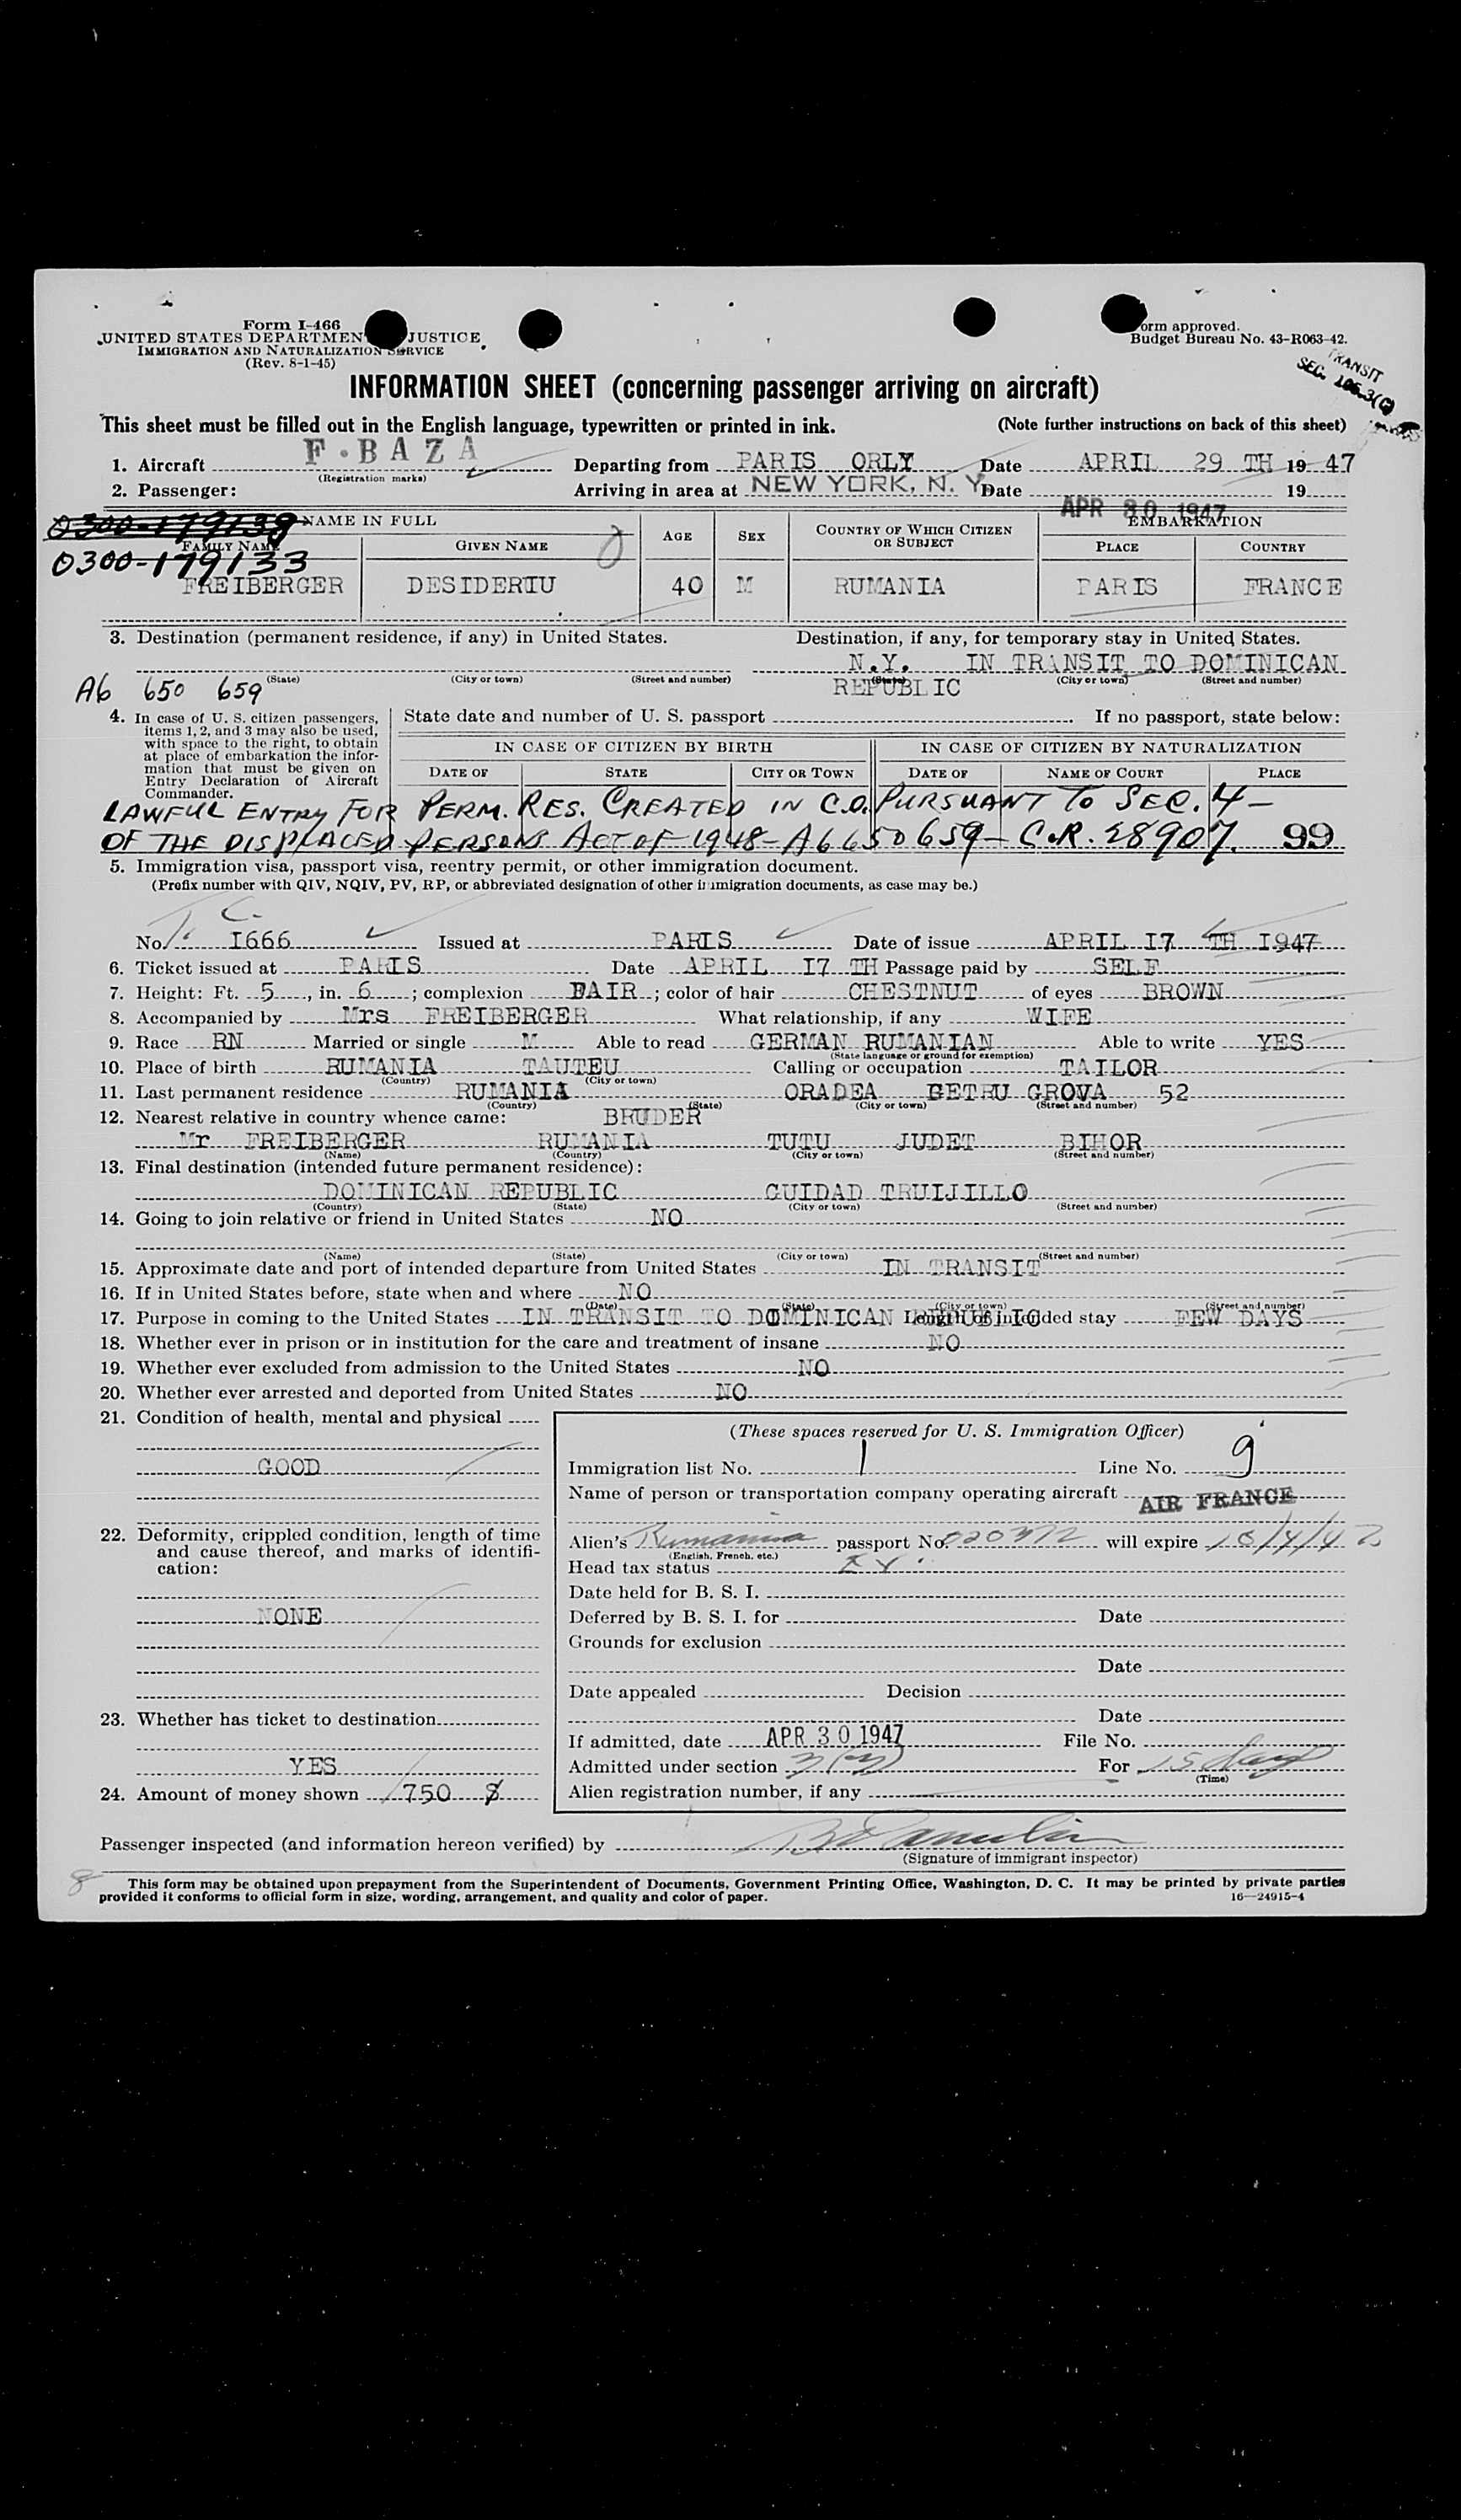 Form I-466
UNITED STATES DEPARTMEN JUSTICE
IMMIGRATION AND NATURALIZATION SERVICE
(Rev. 8-1-45)
orm approved.
Budget Bureau No. 43-R063-42.
TRANSIT
SEC.
INFORMATION SHEET (concerning passenger arriving on aircraft)
This sheet must be filled out in the English language, typewritten or printed in ink. (Note further instructions on back of this sheet)
1. Aircraft F.BAZA Departing from PARIS ORLY Date APRIL 29 TH 19 47
(Registration marks)
2. Passenger: Arriving in area at NEW YORK, N. Y. Date 19
APR 30 1947
0300-179139 NAME IN FULL AGE SEX COUNTRY OF WHICH CITIZEN OR SUBJECT EMBARKATION
FAMILY NAME GIVEN NAME PLACE COUNTRY
0300-179133
FREIBERGER DESIDERIU 40 M RUMANIA PARIS FRANCE
3. Destination (permanent residence, if any) in United States. Destination, if any, for temporary stay in United States.
N.Y. IN TRANSIT TO DOMINICAN
(State) (City or town) (Street and number) (State) (City or town) (Street and number)
A6 650 659 REPUBLIC
4. In case of U. S. citizen passengers, items 1, 2, and 3 may also be used, with space to the right, to obtain at place of embarkation the information that must be given on Entry Declaration of Aircraft Commander.
State date and number of U. S. passport If no passport, state below:
IN CASE OF CITIZEN BY BIRTH IN CASE OF CITIZEN BY NATURALIZATION
DATE OF STATE CITY OR TOWN DATE OF NAME OF COURT PLACE
LAWFUL ENTRY FOR PERM. RES. CREATED IN C.O. PURSUANT TO SEC. 4-
OF THE DISPLACED PERSONS ACT OF 1948-A6650659-C.R. 28907. 99
5. Immigration visa, passport visa, reentry permit, or other immigration document.
(Prefix number with QIV, NQIV, PV, RP, or abbreviated designation of other immigration documents, as case may be.)
T. C.
No. I666 Issued at PARIS Date of issue APRIL I7 TH I947
6. Ticket issued at PARIS Date APRIL I7 TH Passage paid by SELF
7. Height: Ft. 5, in. 6; complexion FAIR; color of hair CHESTNUT of eyes BROWN
8. Accompanied by Mrs FREIBERGER What relationship, if any WIFE
9. Race RN Married or single M Able to read GERMAN RUMANIAN Able to write YES
(State language or ground for exemption)
10. Place of birth RUMANIA TAUTEU Calling or occupation TAILOR
(Country) (City or town)
11. Last permanent residence RUMANIA ORADEA GETRU GROVA 52
(Country) (State) (City or town) (Street and number)
12. Nearest relative in country whence came: BRUDER
Mr FREIBERGER RUMANIA TUTU JUDET BIHOR
(Name) (Country) (City or town) (Street and number)
13. Final destination (intended future permanent residence):
DOMINICAN REPUBLIC CUIDAD TRUIJILLO
(Country) (State) (City or town) (Street and number)
14. Going to join relative or friend in United States NO
(Name) (State) (City or town) (Street and number)
15. Approximate date and port of intended departure from United States IN TRANSIT
16. If in United States before, state when and where NO
(Date) (State) (City or town) (Street and number)
17. Purpose in coming to the United States IN TRANSIT TO DOMINICAN REPUBLIC Length of intended stay FEW DAYS
18. Whether ever in prison or in institution for the care and treatment of insane NO
19. Whether ever excluded from admission to the United States NO
20. Whether ever arrested and deported from United States NO
21. Condition of health, mental and physical
GOOD
22. Deformity, crippled condition, length of time and cause thereof, and marks of identification:
NONE
23. Whether has ticket to destination
YES
24. Amount of money shown 750 $
(These spaces reserved for U. S. Immigration Officer)
Immigration list No. 1 Line No. 9
Name of person or transportation company operating aircraft AIR FRANCE
Alien's Rumania passport No. will expire
(English, French, etc.)
Head tax status
Date held for B. S. I.
Deferred by B. S. I. for Date
Grounds for exclusion
Date
Date appealed Decision
Date
If admitted, date APR 30 1947 File No.
Admitted under section 3(3) For 15 days
(Time)
Alien registration number, if any
Passenger inspected (and information hereon verified) by
(Signature of immigrant inspector)
8
This form may be obtained upon prepayment from the Superintendent of Documents, Government Printing Office, Washington, D. C. It may be printed by private parties
provided it conforms to official form in size, wording, arrangement, and quality and color of paper. 16—24915-4